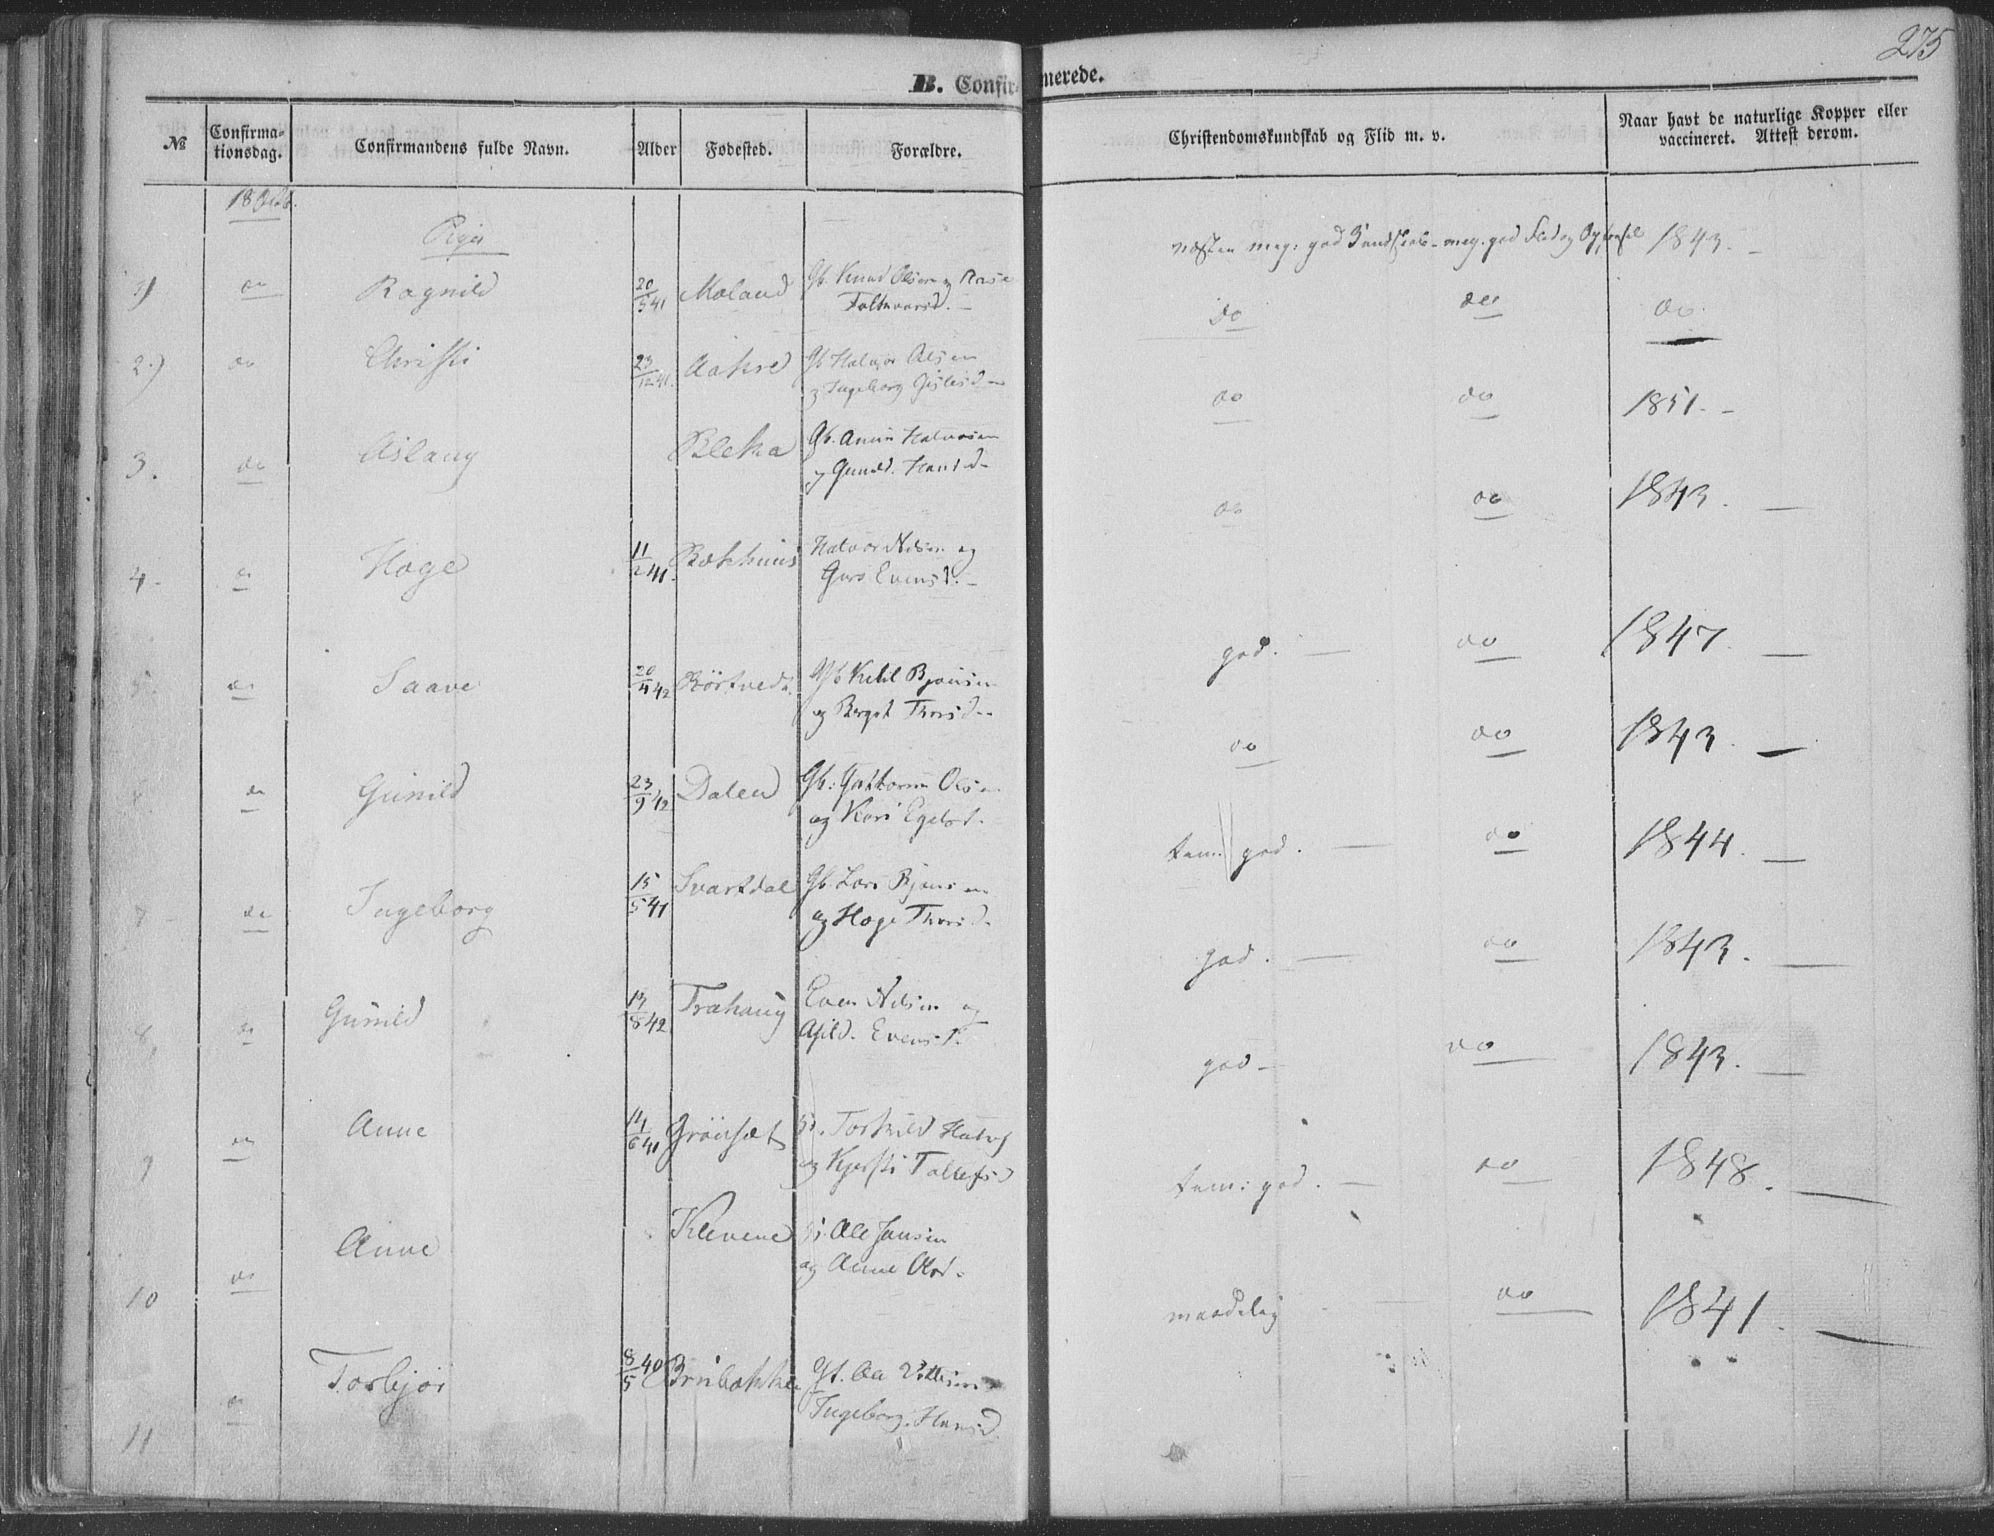 275
B. Confirmerede.
№ Confirmationsdag. Confirmandens fulde Navn. Alder Fødested. Forældre. Christendomskundskab og Flid m. v. Naar havt de naturlige Kopper eller vaccineret. Attest derom.
18 Octb.
Piger
1) do Ragnild 20/5 41 Moland Gb. Knud Olsen og Aase
næsten meg: god Kundskab - meg. god Flid og Opførsel 1843. -
2.) do Christi 23/12 41. Aakre Gb Halvor Olsen
og Ingeborg
do do do
3. do Aslaug Bleka Gb. Halvorsen
og Gunild.
do do 1851. -
4. do Hage 11/2 41. Bækhuus Halvor Nelsen og
Guro Evensd. -
do do 1843. -
5. do Saave 20/4 42 Börtvedt. Gb Ketil Bjönsen
og Bergit Thorsd -
god. - do 1847. -
do Gunild 23/9 42 Dalen Gb: Guttorm Olsen
og Kari
do do 1843. -
7 do Ingeborg 15/5 41 Svartdal Gb. Lars Bjönsen
og Hage Thorsd -
tem. god. - do 1844. -
8, do Gunild 13/8 42 Trahaug Even Nelsen og
Evensd.
god. - do 1843. -
9 do Anne 14/6 41 Grönset Torkild Halv
og Kjersti Tallefsd
god - do 1843. -
10 do Anne Klevene Ole Jansen
og Anne Olsd.
tem: god. - do 1848. -
11 do Torbjör 8/5 40 Brubakken
Ingeborg. Hansd.
maadelig - do 1841. -